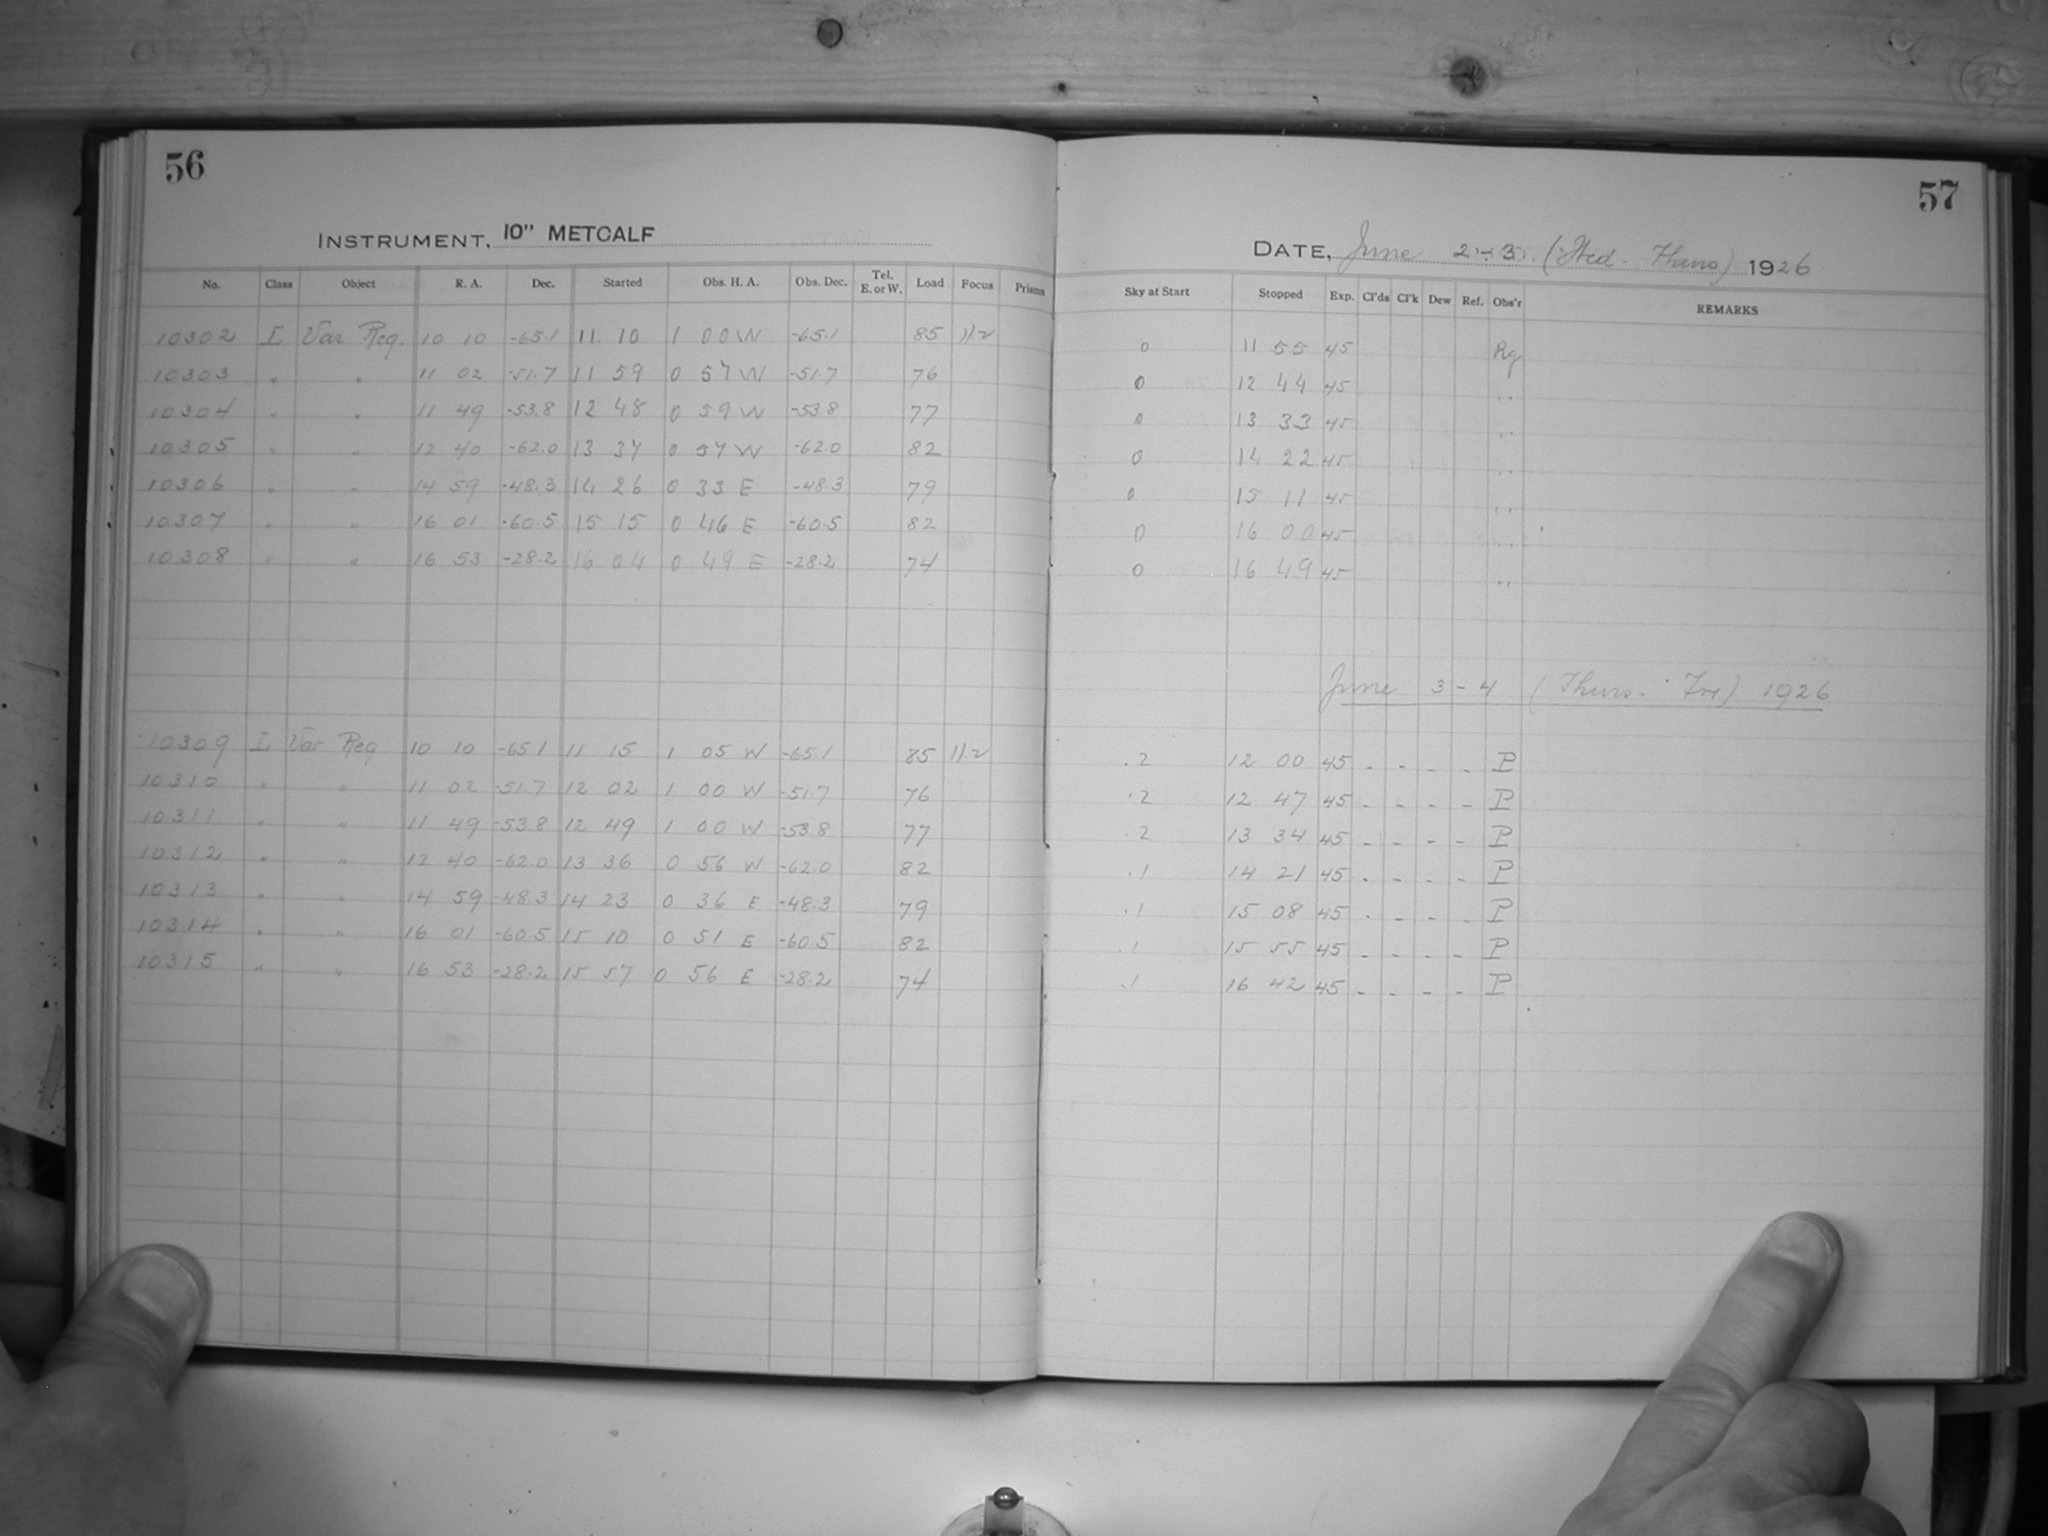 56
INSTRUMENT, 10" METCALF
No. Class Object R. A. Dec. Started Obs. H. A. Obs. Dec. Tel. E. or W. Load Focus Prisms
10302 I Var Reg. 10 10 -65.1 11. 10 1 00 W -65.1 85 11.2
10303 " " 11 02 -51.7 11 59 0 57 W -51.7 76
10304 " " 11 49 -53.8 12 48 0 59 W -53.8 77
10305 " " 12 40 -62.0 13 37 0 57 W -62.0 82
10306 " " 14 59 -48.3 14 26 0 33 E -48.3 79
10307 " " 16 01 -60.5 15 15 0 46 E -60.5 82
10308 " " 16 53 -28.2 16 04 0 49 E -28.2 74
10309 I Var Reg 10 10 -65.1 11 15 1 05 W -65.1 85 11.2
10310 " " 11 02 -51.7 12 02 1 00 W -51.7 76
10311 " " 11 49 -53.8 12 49 1 00 W -53.8 77
10312 " " 12 40 -62.0 13 36 0 56 W -62.0 82
10313 " " 14 59 -48.3 14 23 0 36 E -48.3 79
10314 " " 16 01 -60.5 15 10 0 51 E -60.5 82
10315 " " 16 53 -28.2 15 57 0 56 E -28.2 74
57
DATE, June 2-3. (Wed. Thurs) 1926
Sky at Start Stopped Exp. Cl'ds Cl'k Dew Ref. Obs'r REMARKS
0 11 55 45 Rg
0 12 44 45 "
0 13 33 45 "
0 14 22 45 "
0 15 11 45 "
0 16 00 45 "
0 16 49 45 "
June 3-4 (Thurs. Fri) 1926
.2 12 00 45 - - - - P
.2 12 47 45 - - - - P
.2 13 34 45 - - - - P
.1 14 21 45 - - - - P
.1 15 08 45 - - - - P
.1 15 55 45 - - - - P
.1 16 42 45 - - - - P